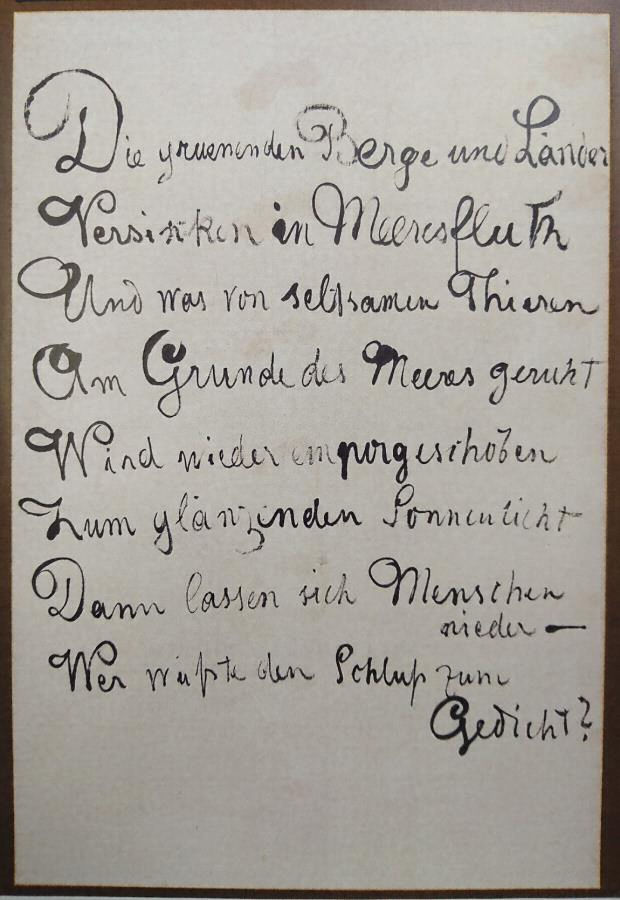 Die gruenenden Berge und Länder
Versinken in Meeresfluth
Und was von seltsamen Thieren
Am Grunde des Meeres geruht
Wird wieder emporgeschoben
Zum glänzenden Sonnenlicht
Dann lassen sich Menschen
nieder —
Wer wüßte den Schluß zum
Gedicht?